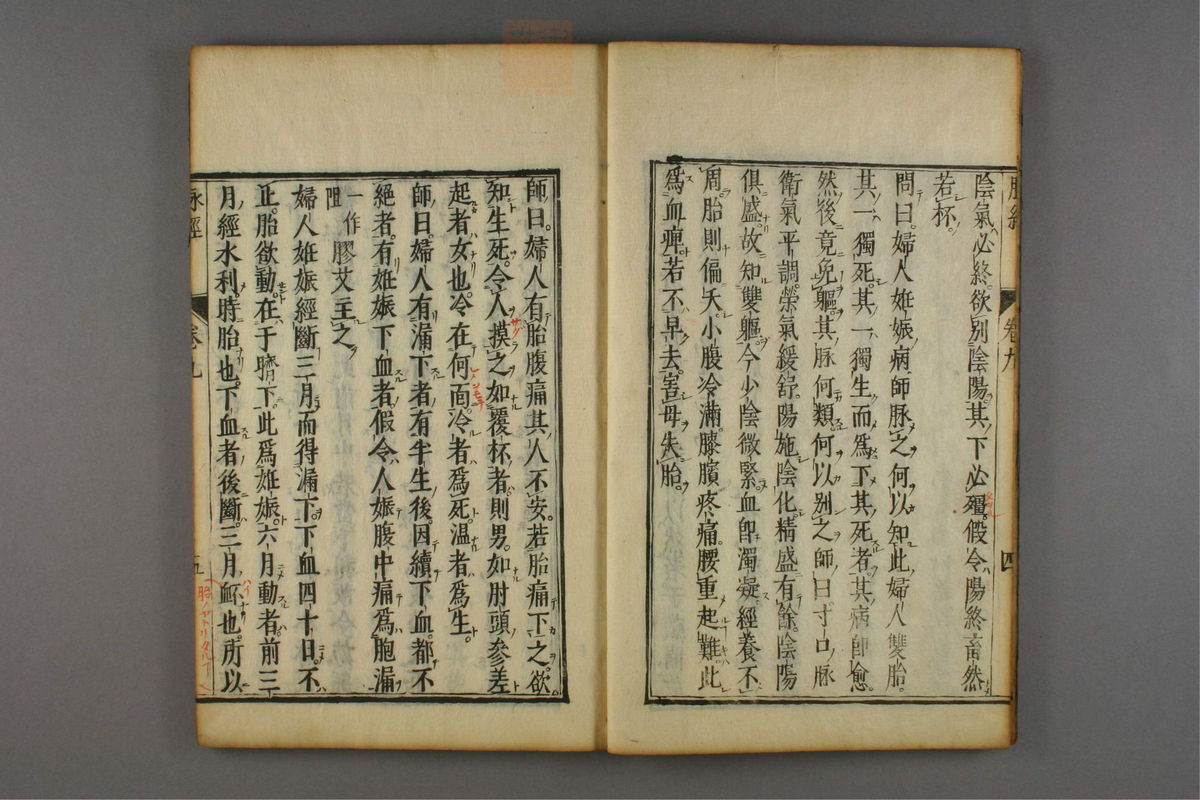 脉經 卷九 四
陰氣必終欲別陰陽其下必殭假令陽終畜然
若杯
問曰婦人姙娠病師脉之何以知此婦人雙胎
其一獨死其一獨生而爲下其死者其病即愈
然後竟免軀其脉何類何以別之師曰寸口脉
衛氣平調榮氣緩舒陽施陰化精盛有餘陰陽
俱盛故知雙軀今少陰微緊血即濁凝經養不
周胎則偏夭小腹冷滿膝臏疼痛腰重起難此
爲血痺若不早去害母失胎
師曰婦人有胎腹痛其人不安若胎痛下之欲
知生死令人摸之如覆杯者則男如肘頭參差
起者女也冷在何面冷者爲死温者爲生
師曰婦人有漏下者有半生後因續下血都不
絕者有姙娠下血者假令人娠腹中痛爲胞漏
一作阻膠艾主之
婦人姙娠經斷三月而得漏下下血四十日不
止胎欲動在于臍下此爲姙娠六月動者前三
月經水利時胎也下血者後斷三月衃也所以
脉經 卷九 五